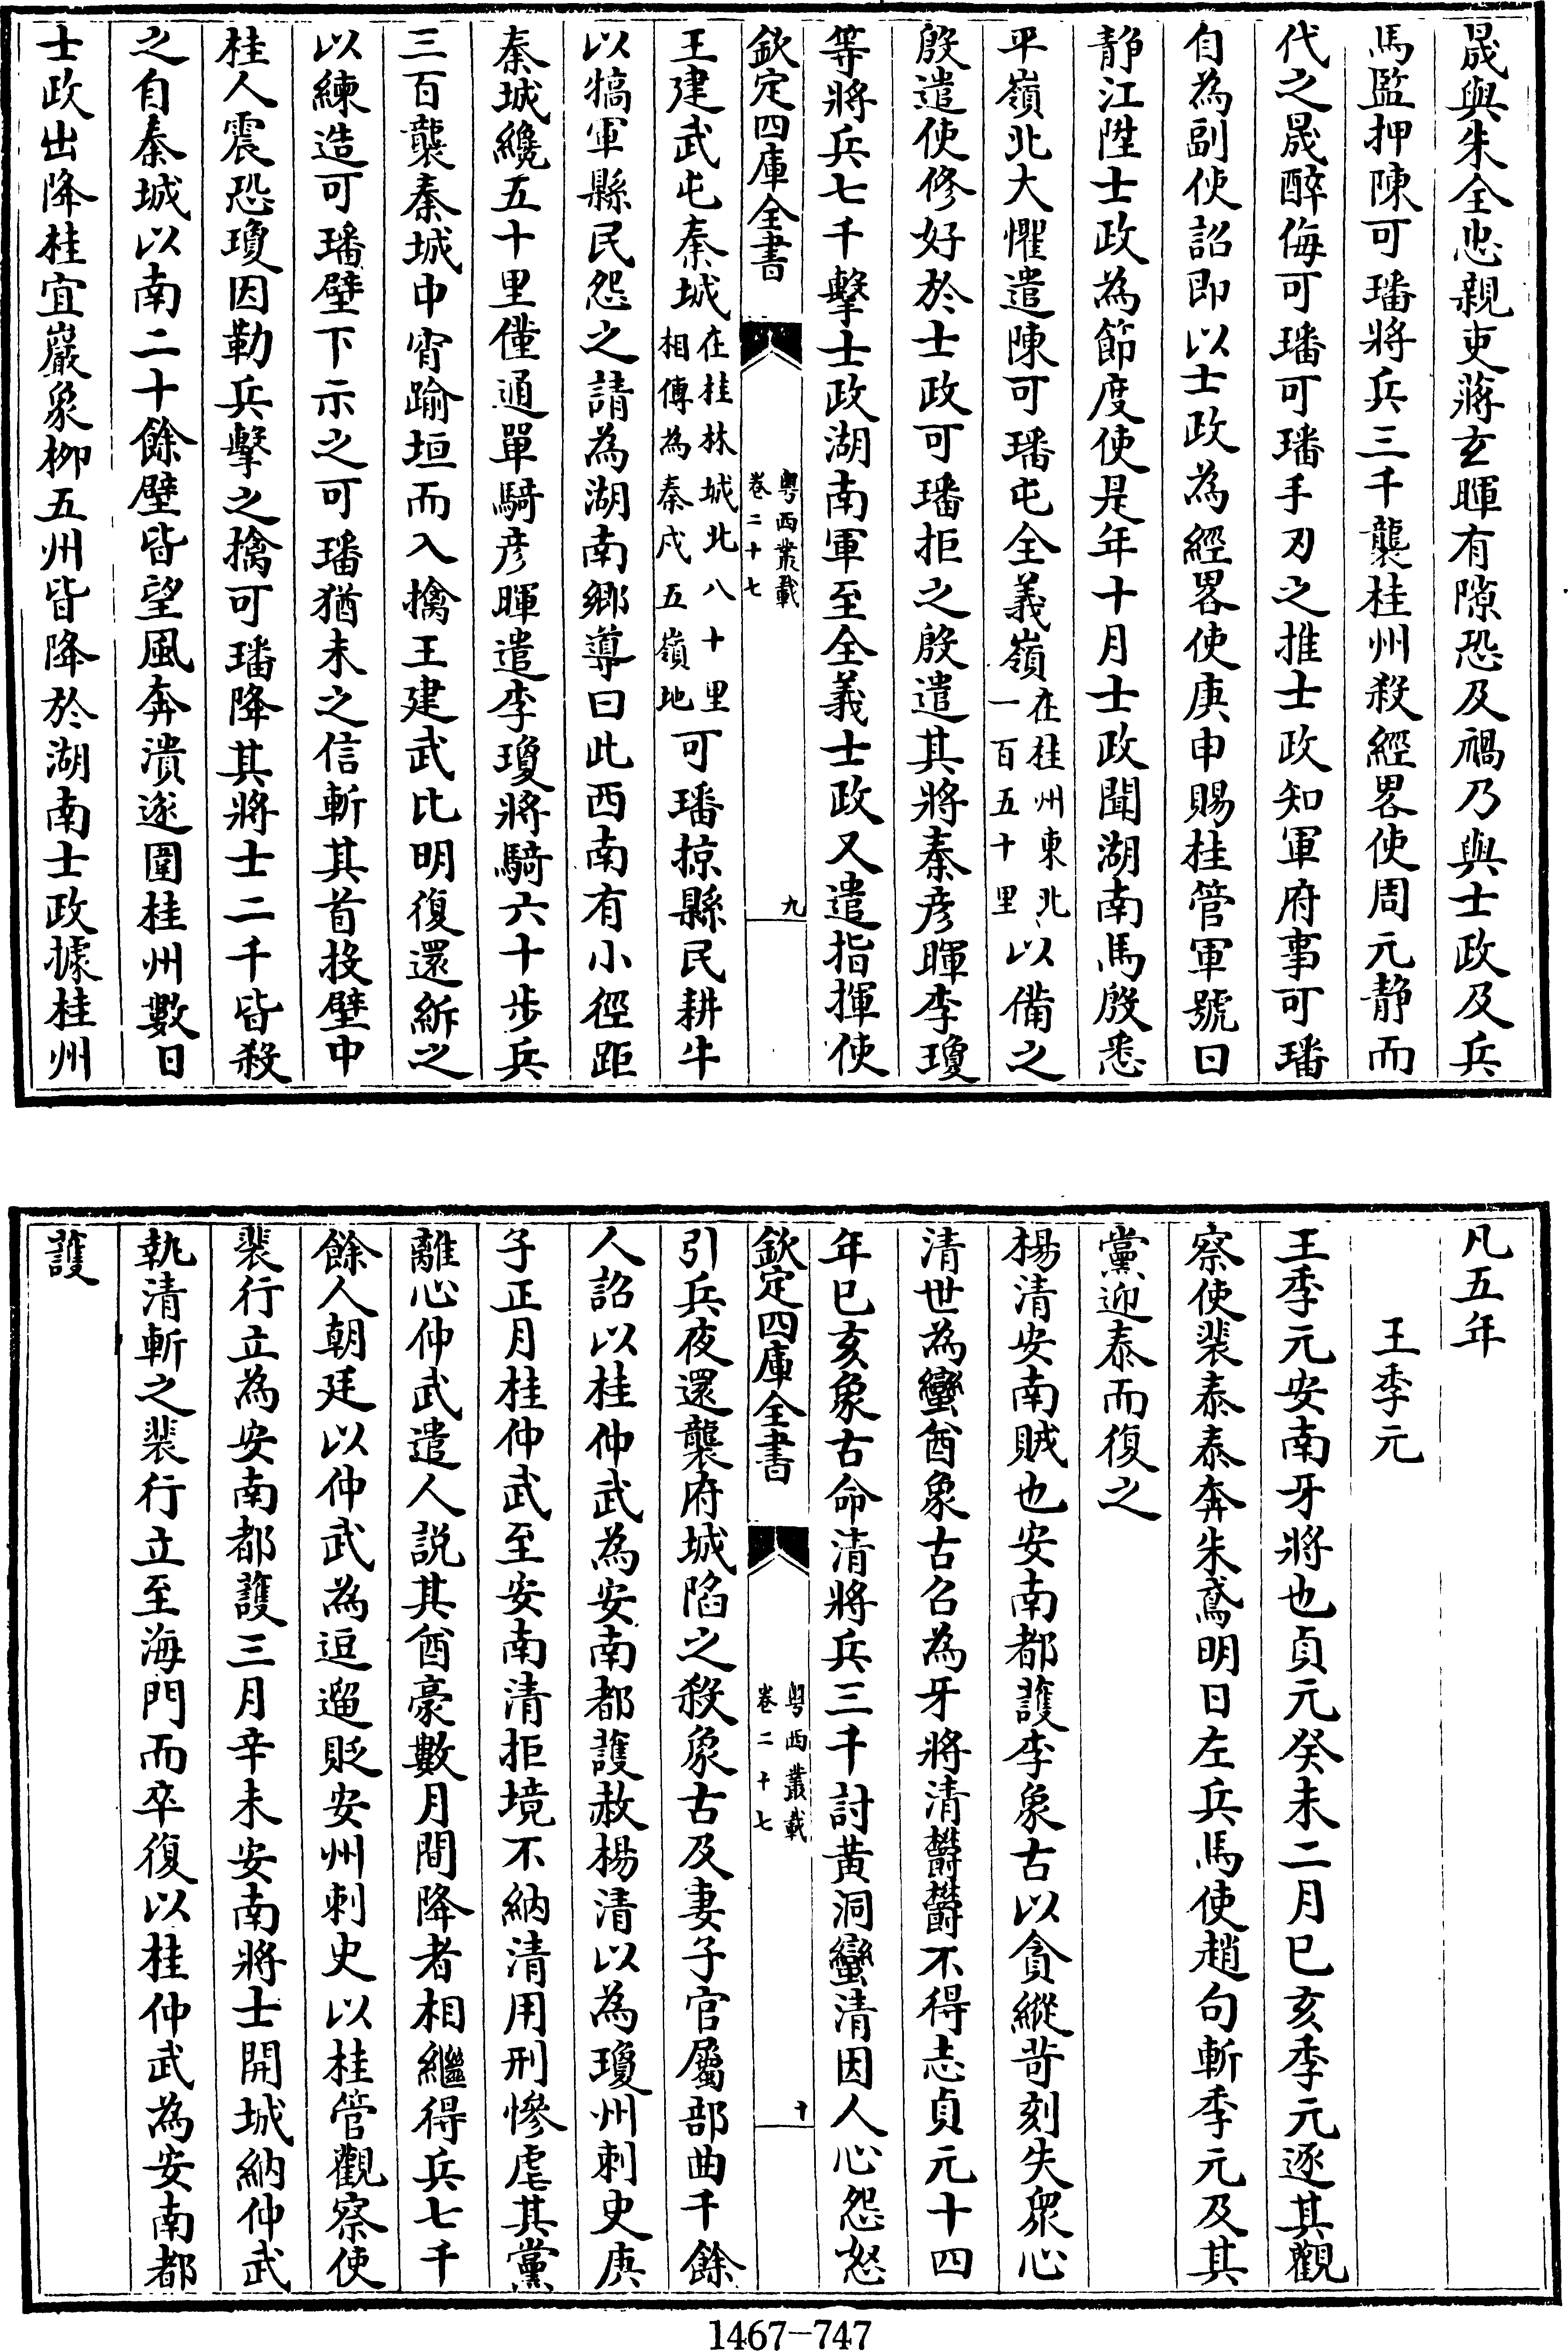 晟與朱全忠親吏蔣玄暉有隙恐及禍乃與士政及兵
馬監押陳可璠將兵三千襲桂州殺經畧使周元静而
代之晟醉侮可璠可璠手刃之推士政知軍府事可璠
自為副使詔即以士政為經畧使庚申賜桂管軍號曰
静江陞士政為節度使是年十月士政聞湖南馬殷悉
平嶺北大懼遣陳可璠屯全義嶺在桂州東北一百五十里以備之
殷遣使修好於士政可璠拒之殷遣其將秦彦暉李瓊
等將兵七千擊士政湖南軍至全義士政又遣指揮使
欽定四庫全書
粤西叢載
卷二十七
九
王建武屯秦城在桂林城北八十里相傳為秦戍五嶺地可璠掠縣民耕牛
以犒軍縣民怨之請為湖南鄉導曰此西南有小徑距
秦城纔五十里僅通單騎彦暉遣李瓊將騎六十步兵
三百襲秦城中宵踰垣而入擒王建武比明復還紤之
以練造可璠壁下示之可璠猶未之信斬其首投壁中
桂人震恐瓊因勒兵擊之擒可璠降其將士二千皆殺
之自秦城以南二十餘壁皆望風奔潰遂圍桂州數日
士政出降桂宜巖象栁五州皆降於湖南士政據桂州
凡五年
王季元
王季元安南牙將也貞元癸未二月已亥季元逐其觀
察使裴泰泰奔朱鳶明日左兵馬使趙句斬季元及其
黨迎泰而復之
楊清安南賊也安南都護李象古以貪縱苛刻失衆心
清世為蠻酋象古召為牙將清欝欝不得志貞元十四
年已亥象古命清將兵三千討黄洞蠻清因人心怨怒
欽定四庫全書
粤西叢載
卷二十七
十
引兵夜還襲府城陷之殺象古及妻子官屬部曲千餘
人詔以桂仲武為安南都護赦楊清以為瓊州刺史庚
子正月桂仲武至安南清拒境不納清用刑慘虐其黨
離心仲武遣人説其酋豪數月間降者相繼得兵七千
餘人朝廷以仲武為逗遛貶安州刺史以桂管觀察使
裴行立為安南都護三月辛未安南將士開城納仲武
執清斬之裴行立至海門而卒復以桂仲武為安南都
護
1467-747